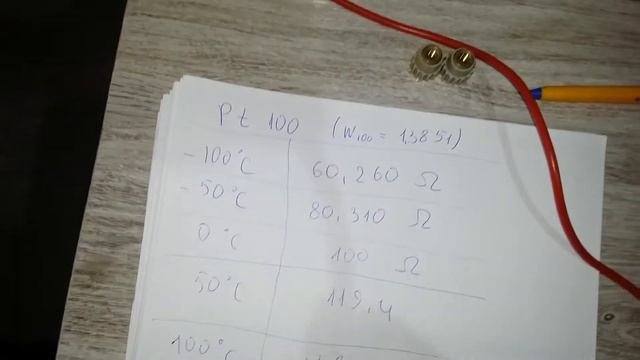 Pt 100 (W100 = 1,3851)
-100°C 60,260 Ω
-50°C 80,310 Ω
0°C 100 Ω
50°C 119,4
100°C